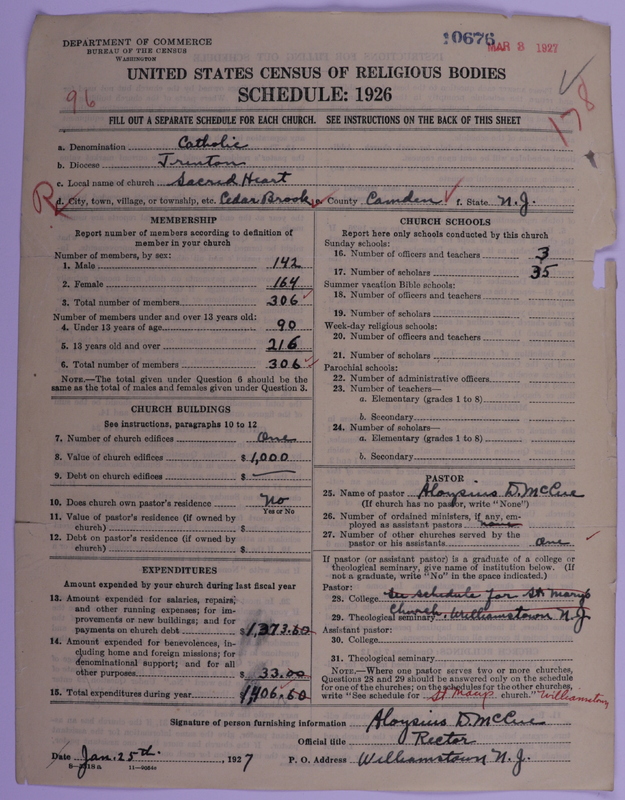 DEPARTMENT OF COMMERCE
BUREAU OF THE CENSUS
WASHINGTON
10676
MAR 3 1927
UNITED STATES CENSUS OF RELIGIOUS BODIES
SCHEDULE: 1926
96
178
FILL OUT A SEPARATE SCHEDULE FOR EACH CHURCH. SEE INSTRUCTIONS ON THE BACK OF THIS SHEET
a. Denomination Catholic
b. Diocese Trenton
c. Local name of church Sacred Heart
R
d. City, town, village, or township, etc. Cedar Brook e. County Camden f. State N.J.
MEMBERSHIP
Report number of members according to definition of
member in your church
Number of members, by sex:
1. Male 142
2. Female 164
3. Total number of members 306
Number of members under and over 13 years old:
4. Under 13 years of age 90
5. 13 years old and over 216
6. Total number of members 306
NOTE.—The total given under Question 6 should be the
same as the total of males and females given under Question 3.
CHURCH BUILDINGS
See instructions, paragraphs 10 to 12
7. Number of church edifices One
8. Value of church edifices $ 1,000
9. Debt on church edifices $ —
10. Does church own pastor's residence No
Yes or No
11. Value of pastor's residence (if owned by
church) $
12. Debt on pastor's residence (if owned by
church) $
EXPENDITURES
Amount expended by your church during last fiscal year
13. Amount expended for salaries, repairs,
and other running expenses; for im-
provements or new buildings; and for
payments on church debt $ 1,373.60
14. Amount expended for benevolences, in-
cluding home and foreign missions; for
denominational support; and for all
other purposes $ 33.00
15. Total expenditures during year 1,406.60
CHURCH SCHOOLS
Report here only schools conducted by this church
Sunday schools:
16. Number of officers and teachers 3
17. Number of scholars 35
Summer vacation Bible schools:
18. Number of officers and teachers
19. Number of scholars
Week-day religious schools:
20. Number of officers and teachers
21. Number of scholars
Parochial schools:
22. Number of administrative officers
23. Number of teachers—
a. Elementary (grades 1 to 8)
b. Secondary
24. Number of scholars—
a. Elementary (grades 1 to 8)
b. Secondary
PASTOR
25. Name of pastor Aloysius D. McCue
(If church has no pastor, write "None")
26. Number of ordained ministers, if any, em-
ployed as assistant pastors none
27. Number of other churches served by the
pastor or his assistants One
If pastor (or assistant pastor) is a graduate of a college or
theological seminary, give name of institution below. (If
not a graduate, write "No" in the space indicated.)
Pastor:
28. College See schedule for St Marys
29. Theological seminary Church, Williamstown N.J
Assistant pastor:
30. College
31. Theological seminary
NOTE.—Where one pastor serves two or more churches,
Questions 28 and 29 should be answered only on the schedule
for one of the churches; on the schedules for the other churches,
write "See schedule for St. Marys church." Williamstown
Signature of person furnishing information Aloysius D. McCue
Official title Rector
Date Jan. 25th., 1927 P. O. Address Williamstown N. J.